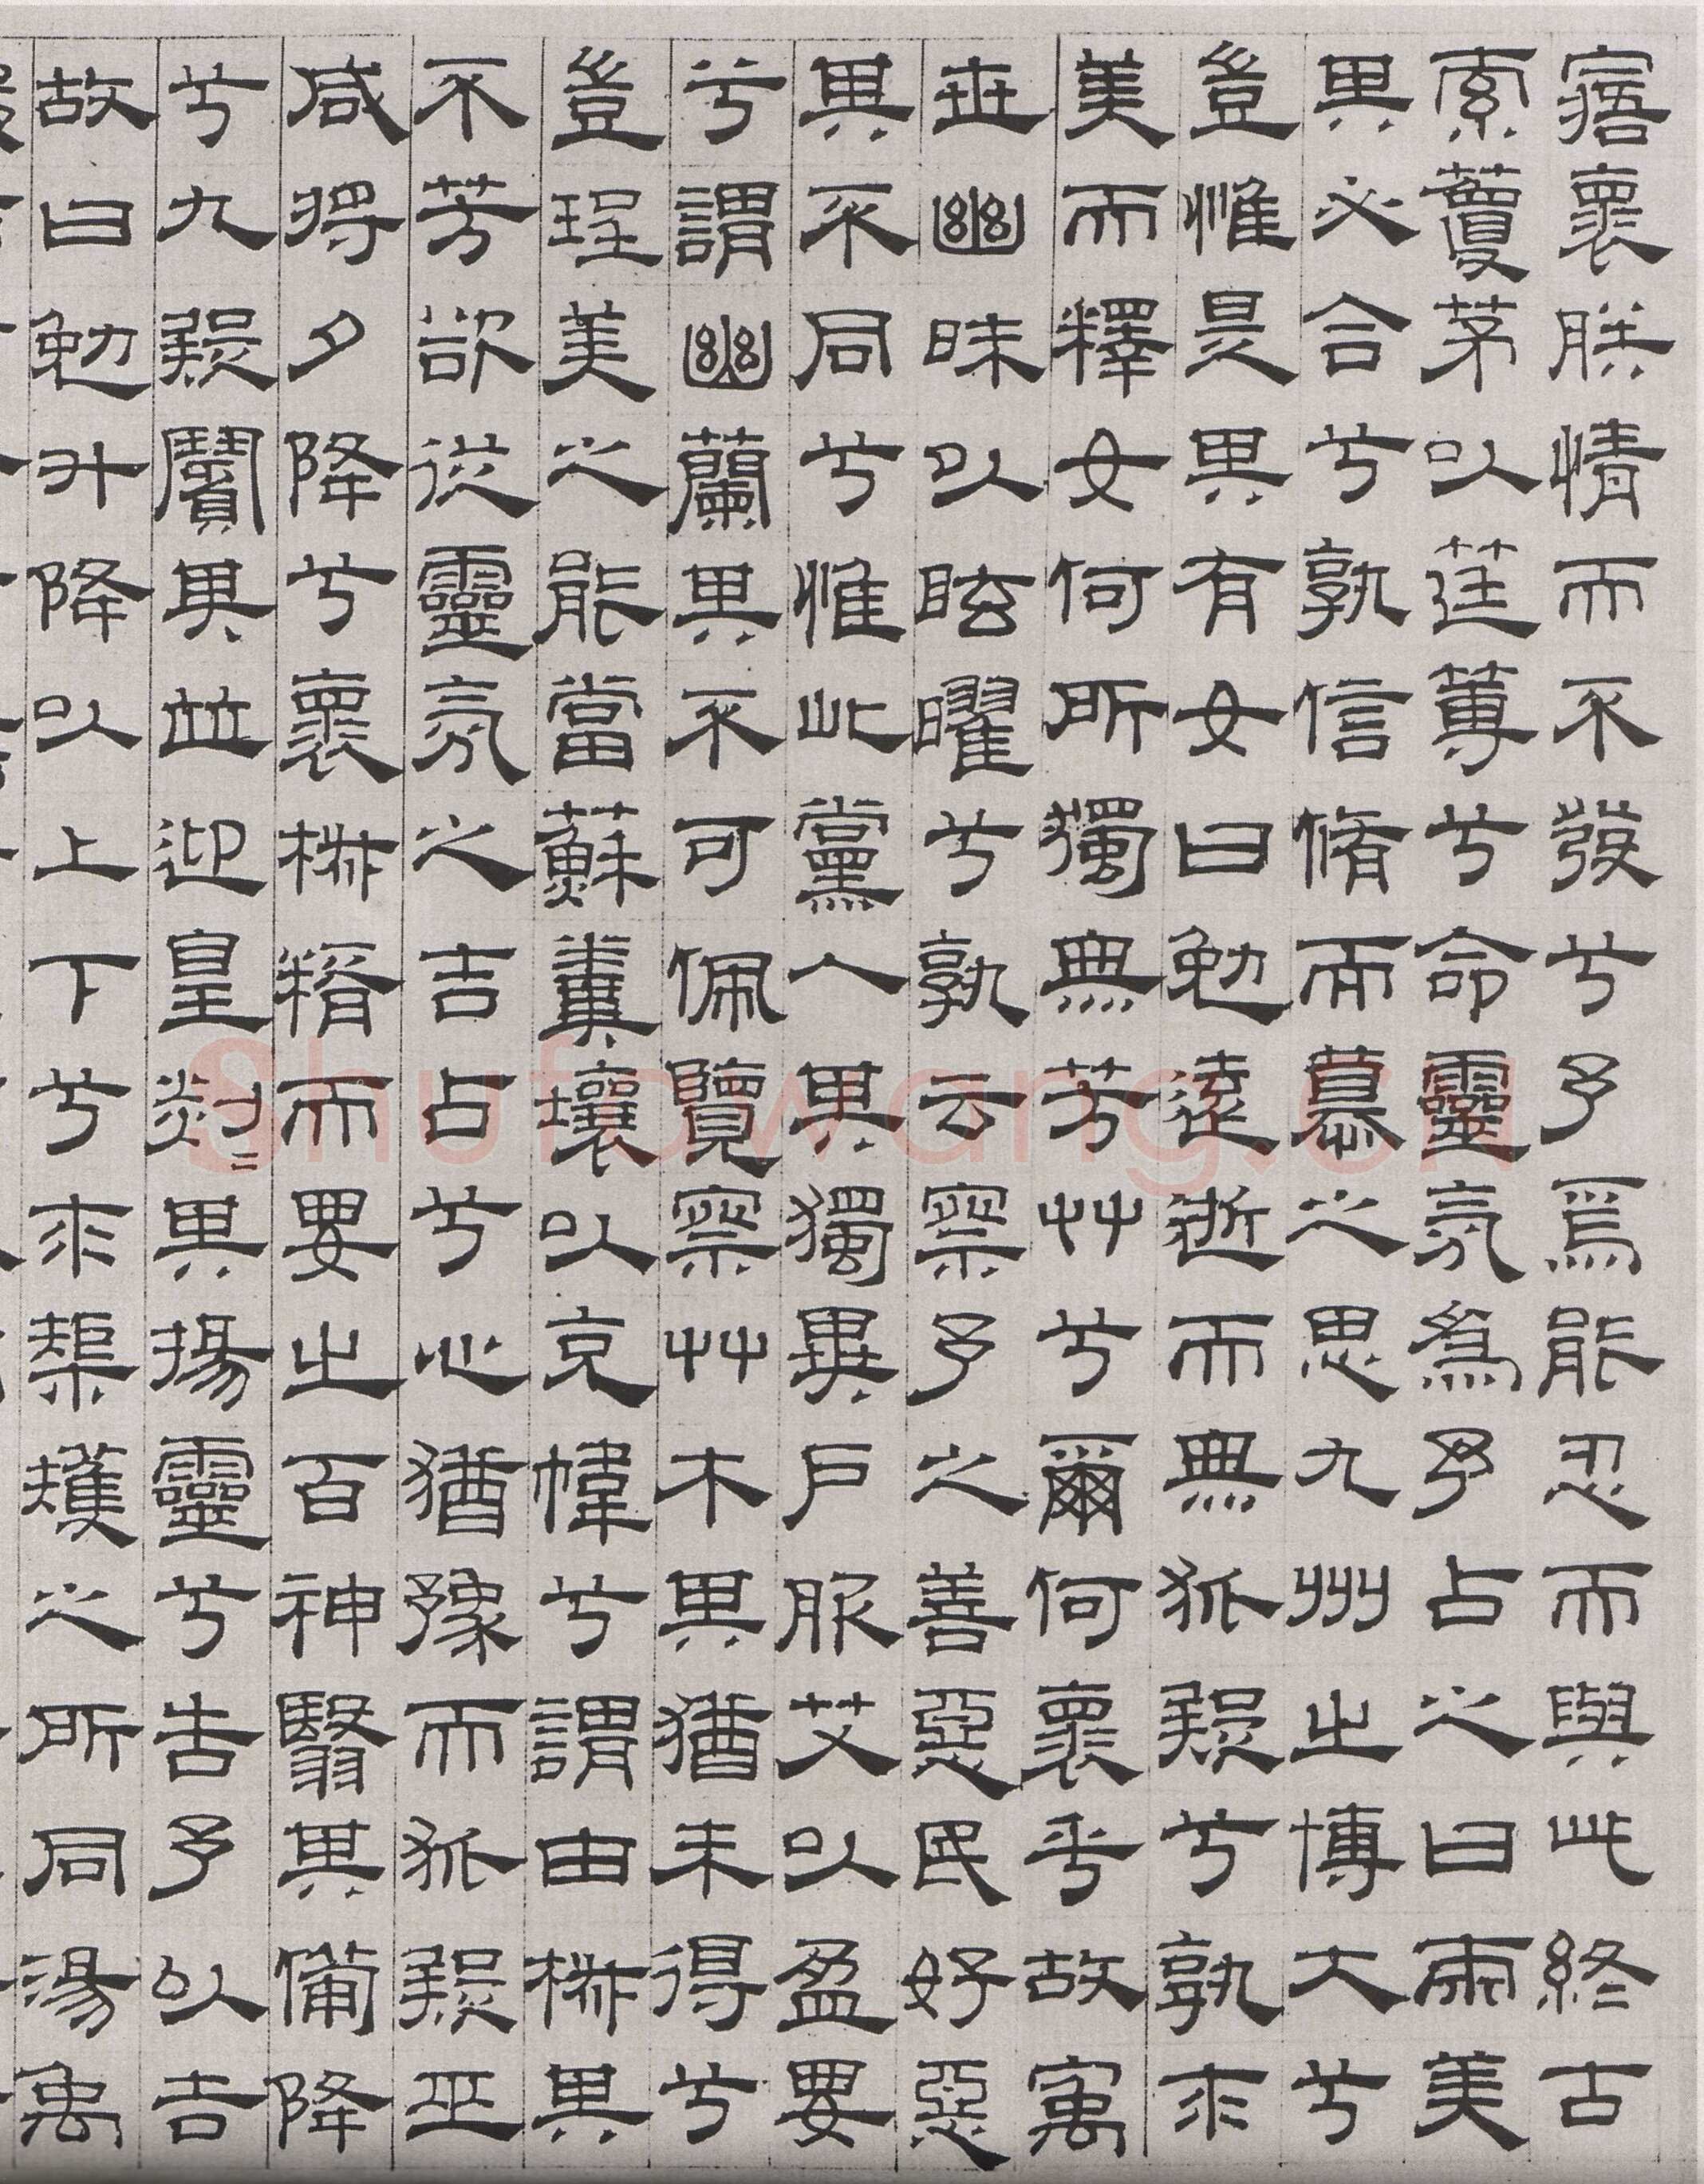 寤褱朕情而不發兮予焉能忍而與此終古
索藑茅以莛蓴兮命靈氛爲予占之曰兩美
其必合兮孰信脩而慕之思九州之博大兮
豈惟是其有女曰勉遠逝而無狐疑兮孰求
美而釋女何所獨無芳艸兮爾何褱乎故寓
世幽昧以眩曜兮孰云察予之善惡民好惡
其不同兮惟此黨人其獨異戶服艾以盈要
兮謂幽蘭其不可佩覽察艸木其猶未得兮
豈珵美之能當蘇糞壤以充幃兮謂申椒其
不芳欲從靈氛之吉占兮心猶豫而狐疑巫
咸將夕降兮褱椒糈而要之百神翳其備降
兮九疑繽其並迎皇剡〻其揚靈兮告予以吉
故曰勉升降以上下兮求榘矱之所同湯禹
Shufawang.cn